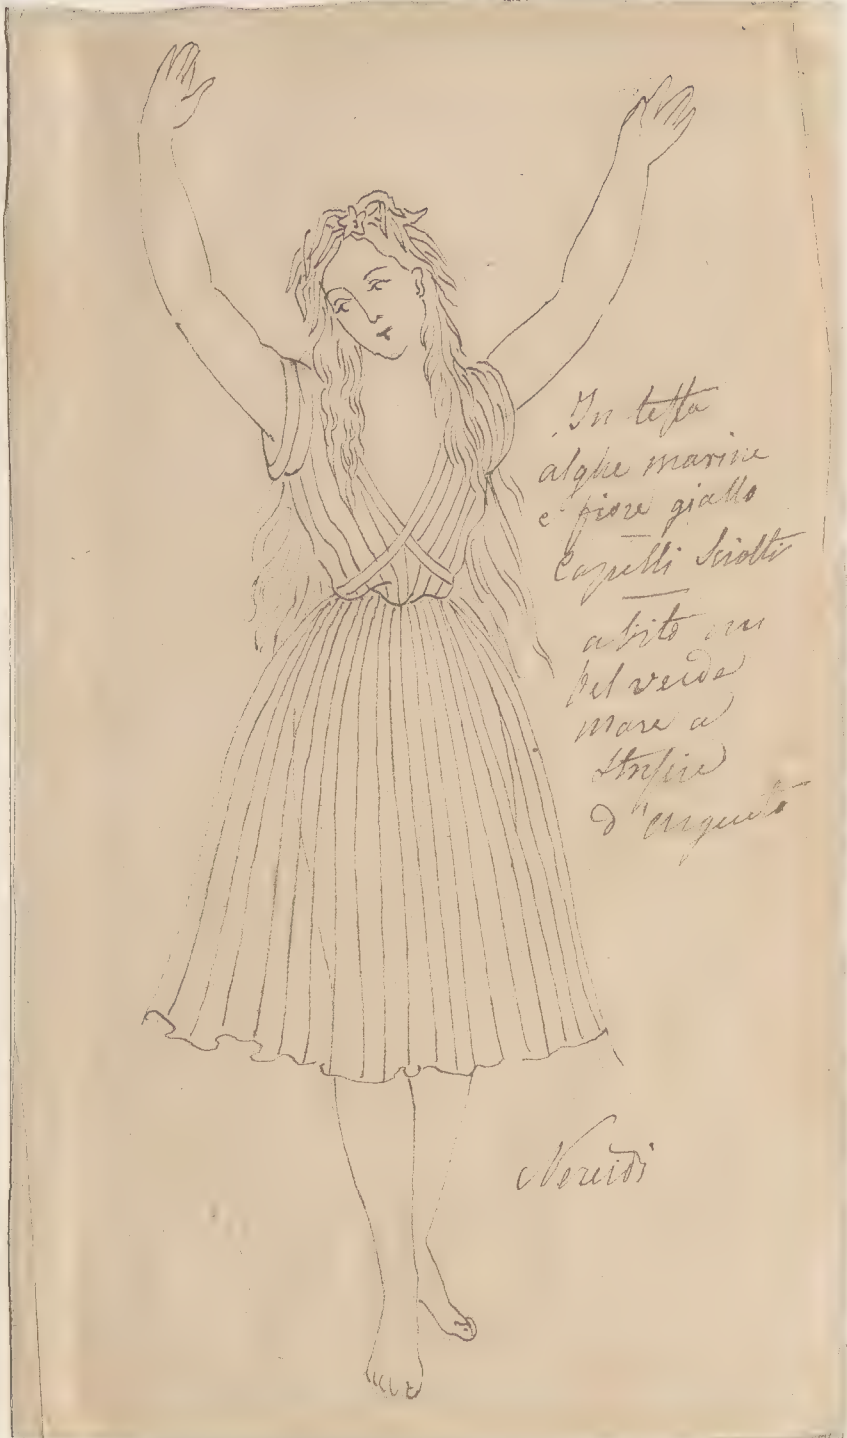 In testa
alghe marine
e fiore giallo
Capelli sciolti
abito un
bel verde
mare a
strisie
d'argento
Nereidi